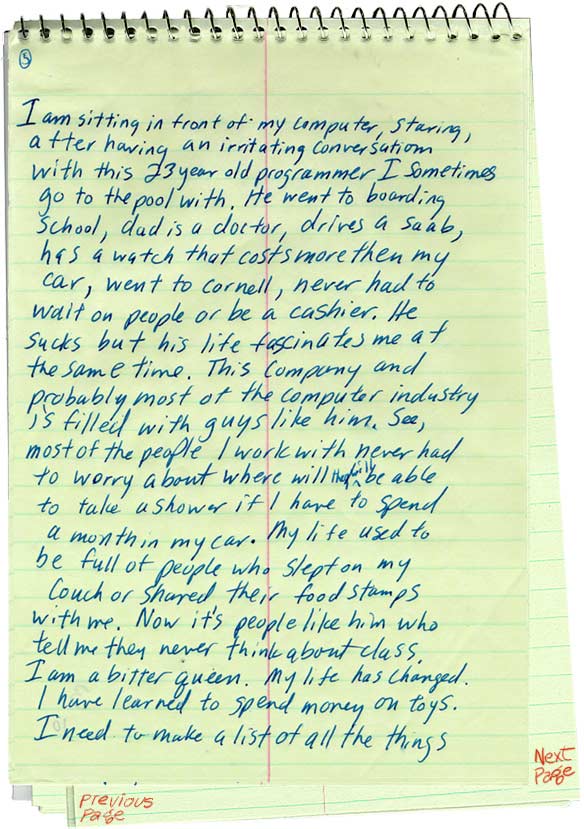 5
I am sitting in front of my computer, staring,
after having an irritating conversation
with this 23 year old programmer I sometimes
go to the pool with. He went to boarding
school, dad is a doctor, drives a saab,
has a watch that costs more then my
car, went to cornell, never had to
wait on people or be a cashier. He
sucks but his life fascinates me at
the same time. This company and
probably most of the computer industry
is filled with guys like him. See,
most of the people I work with never had
to worry about where will they will be able
to take a shower if I have to spend
a month in my car. My life used to
be full of people who slept on my
couch or shared their food stamps
with me. Now it's people like him who
tell me they never think about class.
I am a bitter queen. My life has changed.
I have learned to spend money on toys.
I need to make a list of all the things
Next
Page
Previous
Page